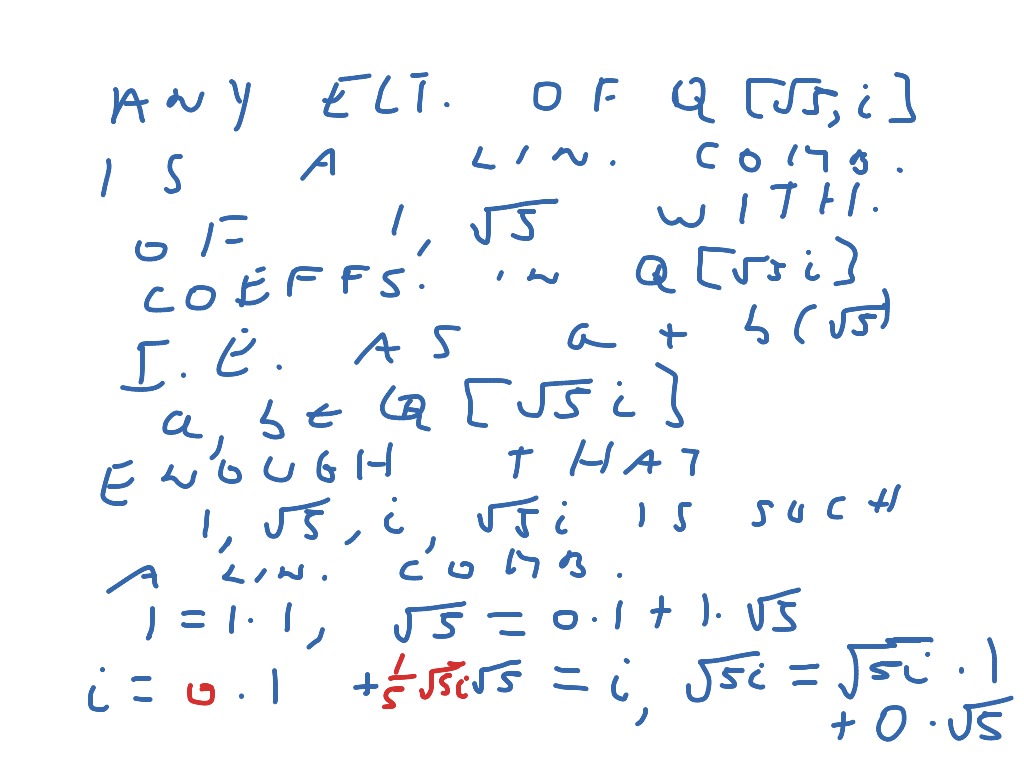 ANY ELT. OF Q[√5, i]
IS A LIN. COMB.
OF 1, √5 WITH.
COEFFS. IN Q[√5i]
I.E. AS a + b(√5)
a, b ∈ Q[√5 i]
ENOUGH THAT
1, √5, i, √5i IS SUCH
A LIN. COMB.
1 = 1·1, √5 = 0·1 + 1·√5
i = 0·1 + 1/5 √5i √5 = i, √5i = √5i · 1
+ 0·√5